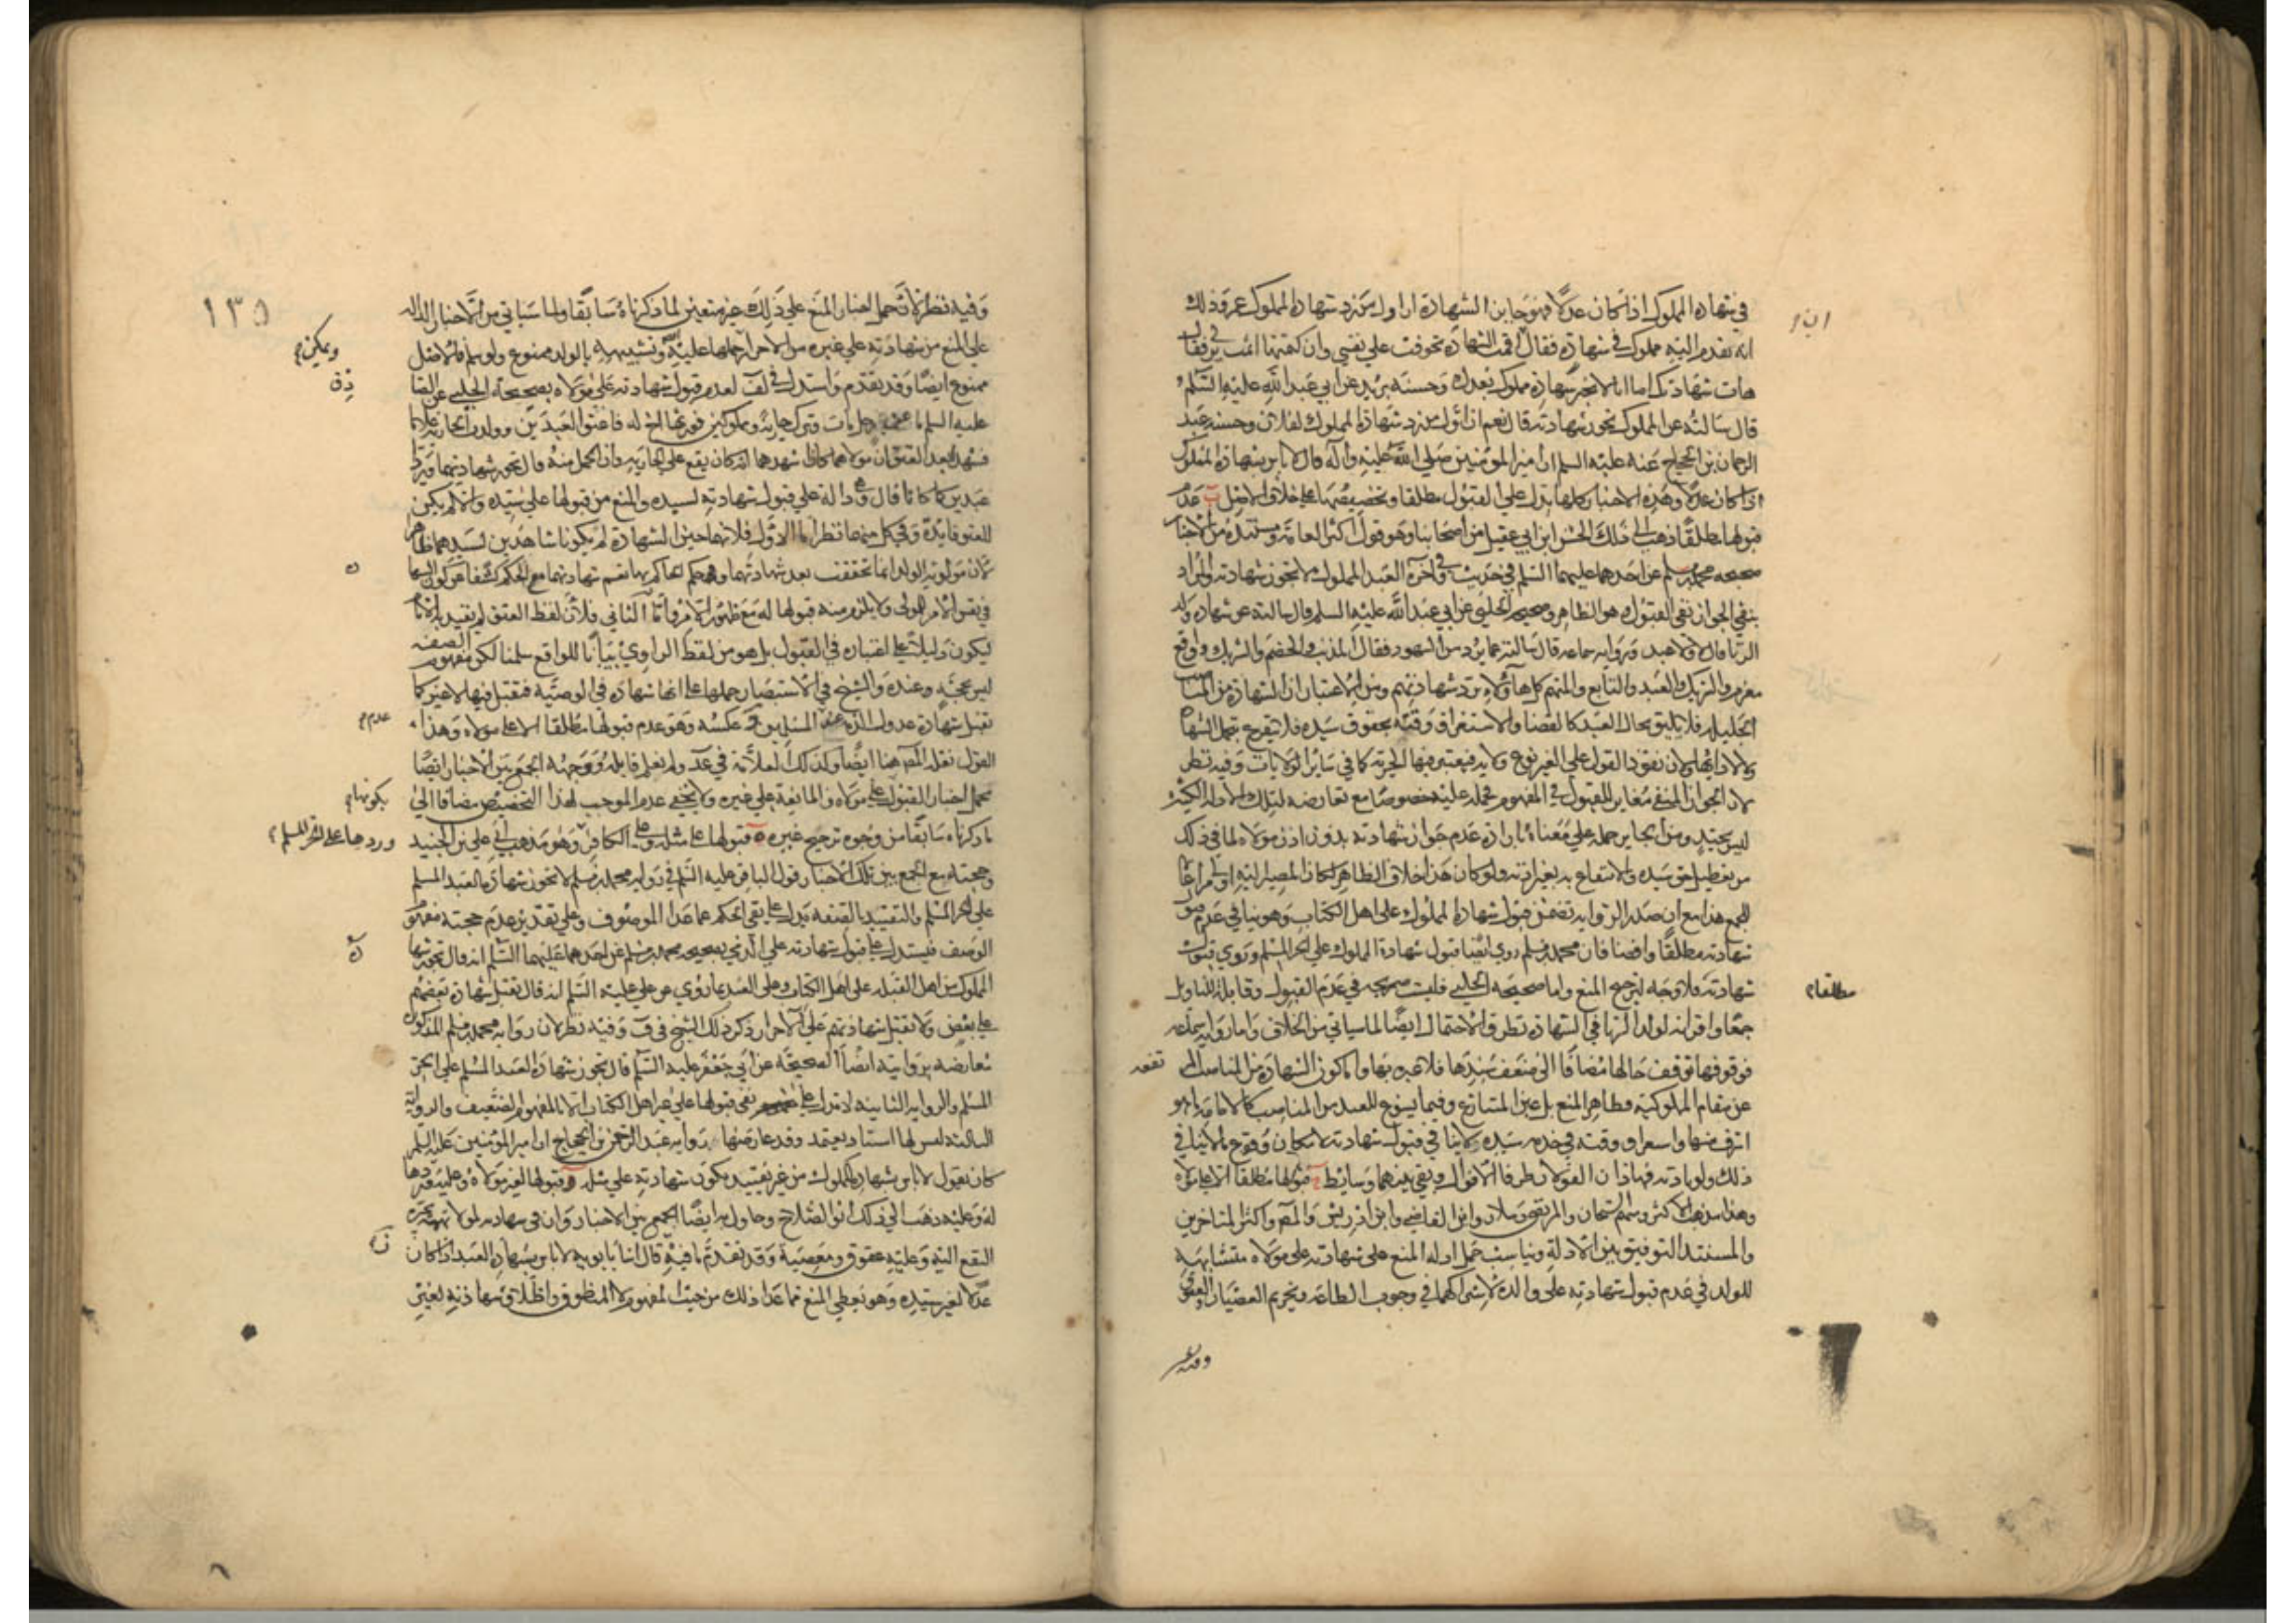 في شهادة المملوك اذا كان عدلا فهو جايز الشهادة ان اول من رد شهادة المملوك عمر وذلك
انه تقدم اليه مملوك في شهادة فقال ان اقمت الشهادة تخوفت على نفسي وان كتمتها اثمت بربي فقال
هات شهادتك اما انا لا نجيز شهادة مملوك بعدك وحسنة بريد عن ابي عبد الله عليه السلم
قال سالته عن المملوك تجوز شهادته قال نعم ان اول من رد شهادة المملوك لفلان وحسنة عبد
الرحمان بن الحجاج عنه عليه السلم ان امير المؤمنين صلى الله عليه وآله قال لا باس بشهادة المملوك
اذا كان عدلا وهذه الاخبار كلها تدل على القبول مطلقا وتخصيصها على خلاف الاصل ب عدم
قبولها مطلقا ذهب الى ذلك الحسن ابن ابي عقيل من اصحابنا وهو قول اكثر العامة ومستنده من الاخبار
صحيحه محمد بن مسلم عن احدهما عليهما السلم في حديث في آخره العبد المملوك لا تجوز شهادته والمراد
بنفي الجواز نفي القبول هو الظاهر وصحيحة الحلبي عن ابي عبد الله عليه السلم قال سالته عن شهادة ولد
الزنا قال لا ولا عبد وفي رواية سماعه قال سالته عما يرد من الشهود فقال المذنب والخصم والشريك ودافع
مغرم والشريك والعبد والتابع والمتهم كل هاؤلاء ترد شهادتهم ومن الاعتبار ان الشهادة من المناصب
الجليلة فلا يليق بحال العبد كالقضا والاستغراق وقته بحقوق سيده فلا يتفرغ لتحمل الشهادة
ولا لادائها ولان نفوذ القول على الغير نوع ولاية فيعتبر فيها الحرية كما في ساير الولايات وفيه نظر
لان الجواز المنفي مغاير للقبول في المفهوم فحمله عليه خصوصا مع تعارضه لتلك الادلة الكثيرة
ليس بجيد ومن الجايز حمله على معناه بارادة عدم جواز شهادته بدون اذن مولاه لما في ذلك
من تعطيل حق سيده والانتفاع به بغير اذنه ولو كان هذا خلاف الظاهر لكان المصير اليه اولى مراعاة
للجمع هذا مع ان صدر الرواية تضمن قبول شهادة المملوك على اهل الكتاب وهو ينافي عدم قبول
شهادته مطلقا وايضا فان محمد بن مسلم روى ايضا قبول شهادة المملوك على الحر المسلم وروي قبول
شهادته فلا وجه لترجيح المنع واما صحيحه الحلبي فليست صريحه في عدم القبول وقابلة للتاويل
جمعا واقرانه لولد الزنا في الشهادة تطرق الاحتمال ايضا لما سياتي من الخلاف واما رواية سماعه
فوقوفها توقف حالها مضافا الى ضعف سندها فلا عبره بها واما كون الشهادة من المناصب
عن مقام المملوكية فظاهر المنع بل عين المتنازع وفيما يسوغ للعبد من المناصب كالامامة ما هو
اشرف منها واستغراق وقته في خدمة سيده لا ينافي قبول شهادته لامكان وقوع ما لا ينافي
ذلك ولو باذنه فهاذان القولان طرفا الاقوال وبقي بينهما وسايط ج قبولها مطلقا الا على مولاه
وهذا مذهب الاكثر ومنهم الشيخان والمرتضى وسلار وابن القاضي وابن ادريس والمص واكثر المتاخرين
والمستند التوفيق بين الادلة ويناسب حمل ادلة المنع على شهادته على مولاه متشابهة
للولد في عدم قبول شهادته على والده لاشتراكهما في وجوب الطاعة وتحريم العصيان والعقوق
وفيه نظر
ان
مطلقا
تقصر
١٣٥
وفيه نظر لان حمل اخبار المنع على ذلك غير متعين لما ذكرناه سابقا ولما سياتي من الاخبار الدالة
على المنع من شهادته على غيره من الاحرار حملها عليه وتشبيهه بالولد ممنوع ولو سلم فالاصل
ممنوع ايضا وقد تقدم واستدل في لف لعدم قبول شهادته على مولاه بصحيحة الحلبي عن الصادق
عليه السلم في رجل مات وترك جارية ومملوكين فورثهما اخ له فاعتق العبدين وولدت الجارية غلاما
فشهدا بعد العتق ان مولاهما كان اشهدهما انه كان يقع على الجارية وان الحمل منه قال تجوز شهادتهما ويردان
عبدين كما كانا قال وفي دالة على قبول شهادته لسيده والمنع من قبولها على سيده والا لم يكن
للعتق فايدة وفي كل منهما نظر اما الاول فلانهما حين الشهادة لم يكونا شاهدين لسيدهما ظاهرا
لان مولوية الولد انما تحققت بعد شهادتهما وحكم الحاكم بها
في نفس الامر للمولى ولا يلزم منه قبولها له مع ظهور الامر واما الثاني فلان لفظ العتق لم تقيد به الامام
ليكون دليلا على اعتباره في القبول بل هو من لفظ الراوي بيانا للواقع سلمنا لكن مفهوم الصفة
ليس بحجة وعنده والشيخ في الاستبصار حملها على انها شهادة في الوصية فتقبل فيها لا غير كما
تقبل شهادة عدول الذمة عكسه وهو عدم قبولها مطلقا الا على مولاه وهذا
القول نقله المص هنا ايضا وكذلك العلامة في عد ولم نعلم قايله ووجهه الجمع بين الاخبار ايضا
بحمل اخبار القبول على مولاه والمانعة على غيره ولا يخفى عدم الموجب لهذا التخصيص مضافا الى
ما ذكرناه سابقا من وجوه ترجيح غيره ه قبولها على مثله وعلى الكافر وهو مذهب ابي علي بن الجنيد
وحجته مع الجمع بين تلك الاخبار قول الباقر عليه السلم في رواية محمد بن مسلم لا تجوز شهادة العبد المسلم
على الحر المسلم والتقييد بالصفة يدل على نفي الحكم عما عدا الموصوف وعلى تقدير عدم حجية مفهوم
الوصف فيستدل على قبول شهادته على الذمي بصحيحه محمد بن مسلم عن احدهما عليهما السلم انه قال تجوز شهادة
المملوك من اهل القبلة على اهل الكتاب وعلى العبد بما روي عن علي عليه السلم انه قال تقبل شهادة بعضهم
على بعض ولا تقبل شهادتهم على الاحرار ذكر ذلك الشيخ في ف وفيه نظر لان رواية محمد بن مسلم المذكورة
تعارضه بروايته ايضا الصحيحة عن ابي جعفر عليه السلم قال تجوز شهادة العبد المسلم على الحر
المسلم والرواية الثانية لا تدل على نفي قبولها على غير اهل الكتاب الا بالمفهوم الضعيف والرواية
الثالثة ليس لها اسناد يعتمد وقد عارضها رواية عبد الرحمن بن الحجاج ان امير المؤمنين عليه السلم
كان يقول لا باس بشهادة المملوك من غير تقييد بكون شهادته على مثله و قبولها لغير مولاه وعليه وردها
له وعليه ذهب الى ذلك ابو الصلاح وحاول به ايضا الجمع بين الاخبار وان في شهادته لمولاه تهمة بجره
النفع اليه وعليه عقوق ومعصية وقد تقدم ما فيه قال ابنا بابويه لا باس بشهادة العبد اذا كان
عدلا لغير سيده وهو يعطي المنع مما عدا ذلك من حيث المفهوم لا المنطوق واطلاق شهادته لغير
ويمكن
بكونها
عدم
وردها على الحر المسلم